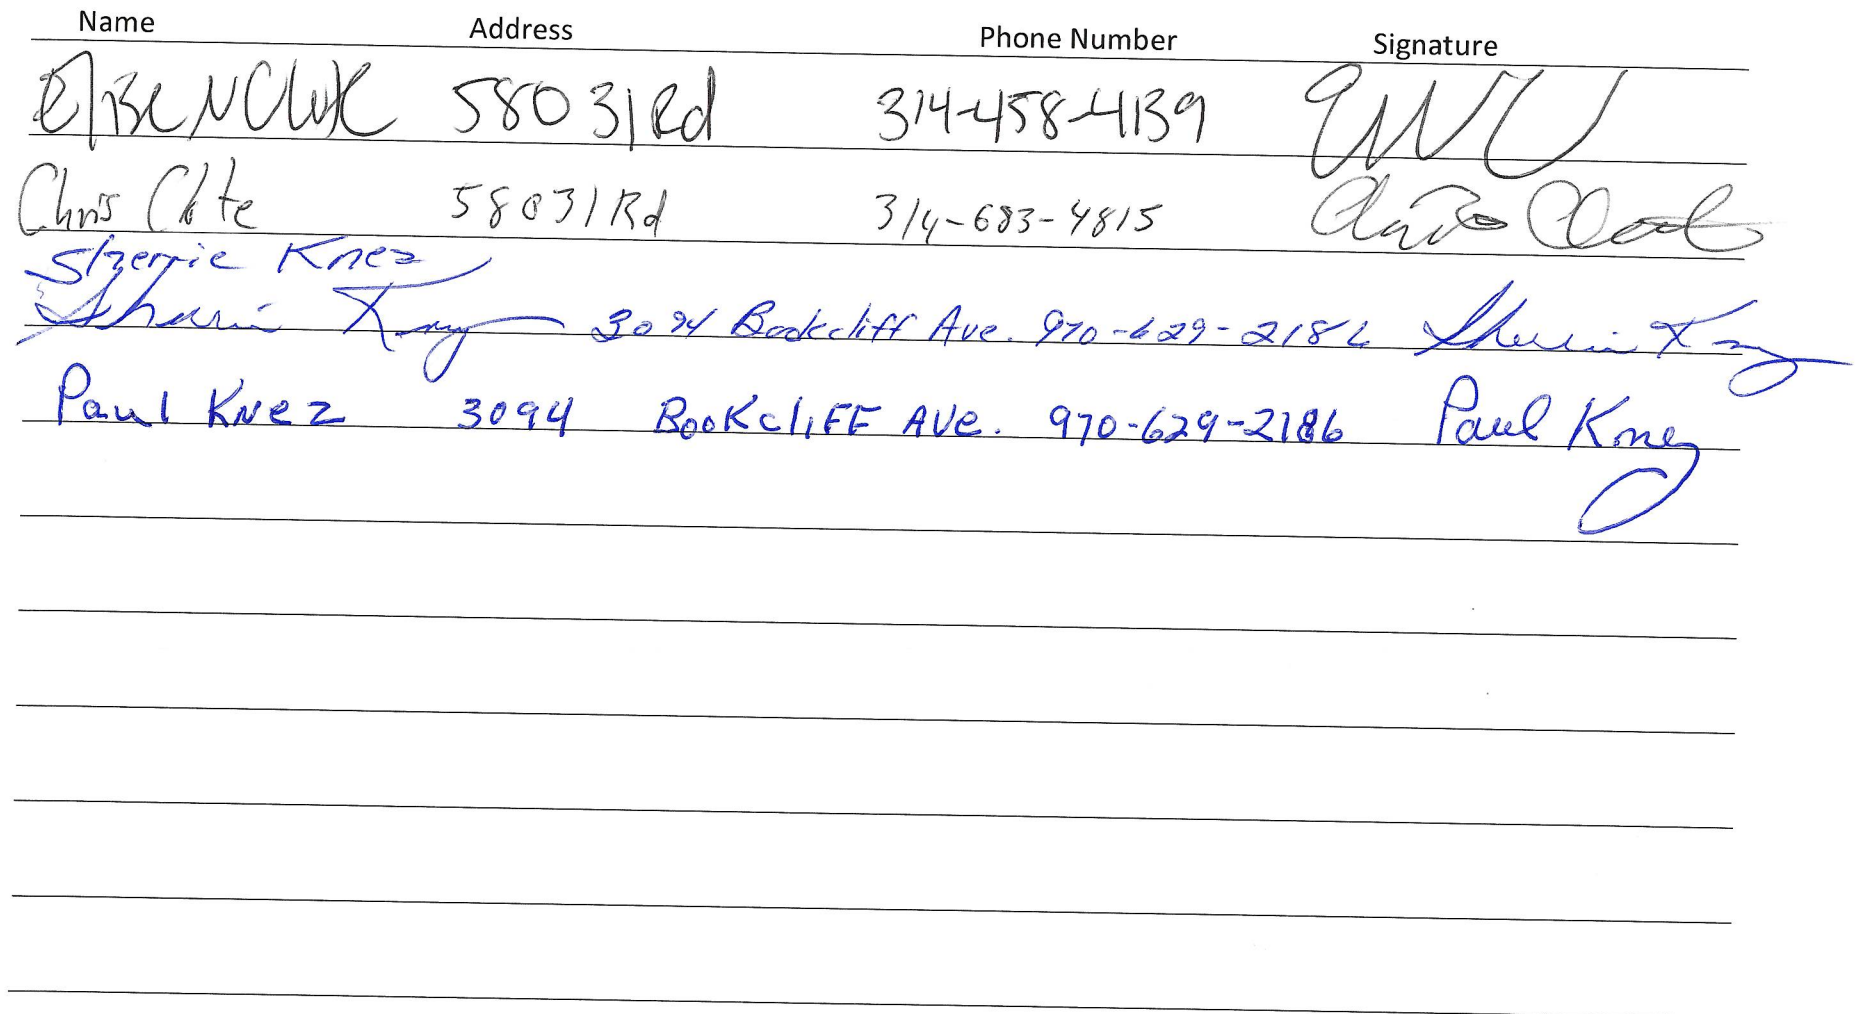 Name Address Phone Number Signature
580 31 Rd 314-458-4139
Chris 580 31 Rd 314-683-4815
Sherrie Knez
Sherrie Knez 3094 Bookcliff Ave. 970-629-2186 Sherrie Knez
Paul Knez 3094 BOOKCLIFF AVe. 970-629-2186 Paul Knez